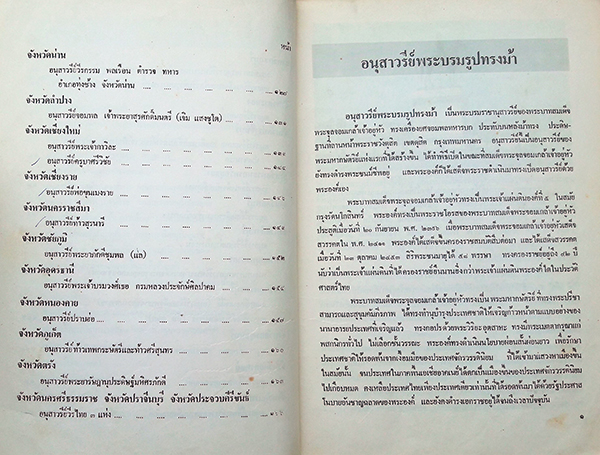 หน้า
จังหวัดน่าน
อนุสาวรีย์วีรกรรม พลเรือน ตำรวจ ทหาร
อำเภอทุ่งช้าง จังหวัดน่าน ๑๒๘
จังหวัดลำปาง
อนุสาวรีย์จอมพล เจ้าพระยาสุรศักดิ์มนตรี (เจิม แสงชูโต) ๑๓๑
จังหวัดเชียงใหม่
อนุสาวรีย์พระเจ้ากาวิละ
อนุสาวรีย์ครูบาศรีวิชัย
จังหวัดเชียงราย
อนุสาวรีย์พ่อขุนเมงราย
จังหวัดนครราชสีมา
อนุสาวรีย์ท้าวสุรนารี
จังหวัดชัยภูมิ
อนุสาวรีย์พระยาภักดีชุมพล (แล)
จังหวัดอุดรธานี
อนุสาวรีย์พระเจ้าบรมวงศ์เธอ กรมหลวงประจักษ์ศิลปาคม
จังหวัดหนองคาย
อนุสาวรีย์ปราบฮ่อ
จังหวัดภูเก็ต
อนุสาวรีย์ท้าวเทพกระษัตรีและท้าวศรีสุนทร ๑๖๐
จังหวัดตรัง
อนุสาวรีย์พระยารัษฎานุประดิษฐ์มหิศรภักดี ๑๖๓
จังหวัดนครศรีธรรมราช จังหวัดปราจีนบุรี จังหวัดประจวบคีรีขันธ์
อนุสาวรีย์วีรไทย ๓ แห่ง
อนุสาวรีย์พระบรมรูปทรงม้า
อนุสาวรีย์พระบรมรูปทรงม้า เป็นพระบรมราชานุสาวรีย์ของพระบาทสมเด็จ
พระจุลจอมเกล้าเจ้าอยู่หัว ทรงเครื่องยศจอมพลทหารบก ประทับบนหลังม้าทรง ประดิษ-
ฐานที่ลานหน้าพระราชวังดุสิต เขตดุสิต กรุงเทพมหานคร อนุสาวรีย์นี้เป็นอนุสาวรีย์ของ
พระมหากษัตริย์แห่งแรกที่ได้สร้างขึ้น ได้ทำพิธีเปิดในขณะที่สมเด็จพระจุลจอมเกล้าเจ้าอยู่หัว
ยังทรงดำรงพระชนม์ชีพอยู่ และพระองค์ก็ได้เสด็จพระราชดำเนินมาทรงเปิดอนุสาวรีย์ด้วย
พระองค์เอง
พระบาทสมเด็จพระจุลจอมเกล้าเจ้าอยู่หัวทรงเป็นพระเจ้าแผ่นดินองค์ที่ ๕ ในสมัย
กรุงรัตนโกสินทร์ พระองค์ทรงเป็นพระราชโอรสของพระบาทสมเด็จพระจอมเกล้าเจ้าอยู่หัว
ประสูติเมื่อวันที่ ๒๐ กันยายน พ.ศ. ๒๓๙๖ เมื่อพระบาทสมเด็จพระจอมเกล้าเจ้าอยู่หัวเสด็จ
สวรรคตใน พ.ศ. ๒๔๑๑ พระองค์ได้เสด็จขึ้นครองราชสมบัติสืบต่อมา และได้เสด็จสวรรคต
เมื่อวันที่ ๒๓ ตุลาคม ๒๔๕๓ สิริพระชนมายุได้ ๕๘ พรรษา ทรงครองราชย์อยู่ถึง ๔๒ ปี
นับว่าเป็นพระเจ้าแผ่นดินที่ได้ครองราชย์ยืนนานยิ่งกว่าพระเจ้าแผ่นดินพระองค์ใดในประวัติ
ศาสตร์ไทย
พระบาทสมเด็จพระจุลจอมเกล้าเจ้าอยู่หัวทรงเป็น พระมหากษัตริย์ที่ทรงพระปรีชา
สามารถและสุขุมคัมภีรภาพ ได้ทรงทำนุบำรุงประเทศชาติให้เจริญก้าวหน้าตามแบบอย่างของ
นานาอารยประเทศที่เจริญแล้ว ทรงกอปรด้วยพระวิริยะอุตสาหะ ทรงมีพระเมตตากรุณาแก่
พสกนิกรทั่วไป ไม่เลือกชั้นวรรณะ พระองค์ทรงดำเนินนโยบายผ่อนสั้นผ่อนยาว เพื่อรักษา
ประเทศชาติให้รอดพ้นจากเงื้อมมือของประเทศนักล่าจักรวรรดินิยม ที่ได้เข้ามาแสวงหาเมืองขึ้น
ในสมัยนั้น จนประเทศในภาคใต้ของทวีปเอเซียได้ตกเป็นเมืองขึ้นของประเทศนักล่าจักรวรรดินิยม
ไปเกือบหมด คงเหลือประเทศไทยเพียงประเทศเดียวเท่านั้นที่ได้รอดพ้นมาได้ด้วยรัฐประศาส
โนบายอันชาญฉลาดของพระองค์ และยังคงดำรงเอกราชอยู่ได้จนถึงเวลาปัจจุบัน
๑